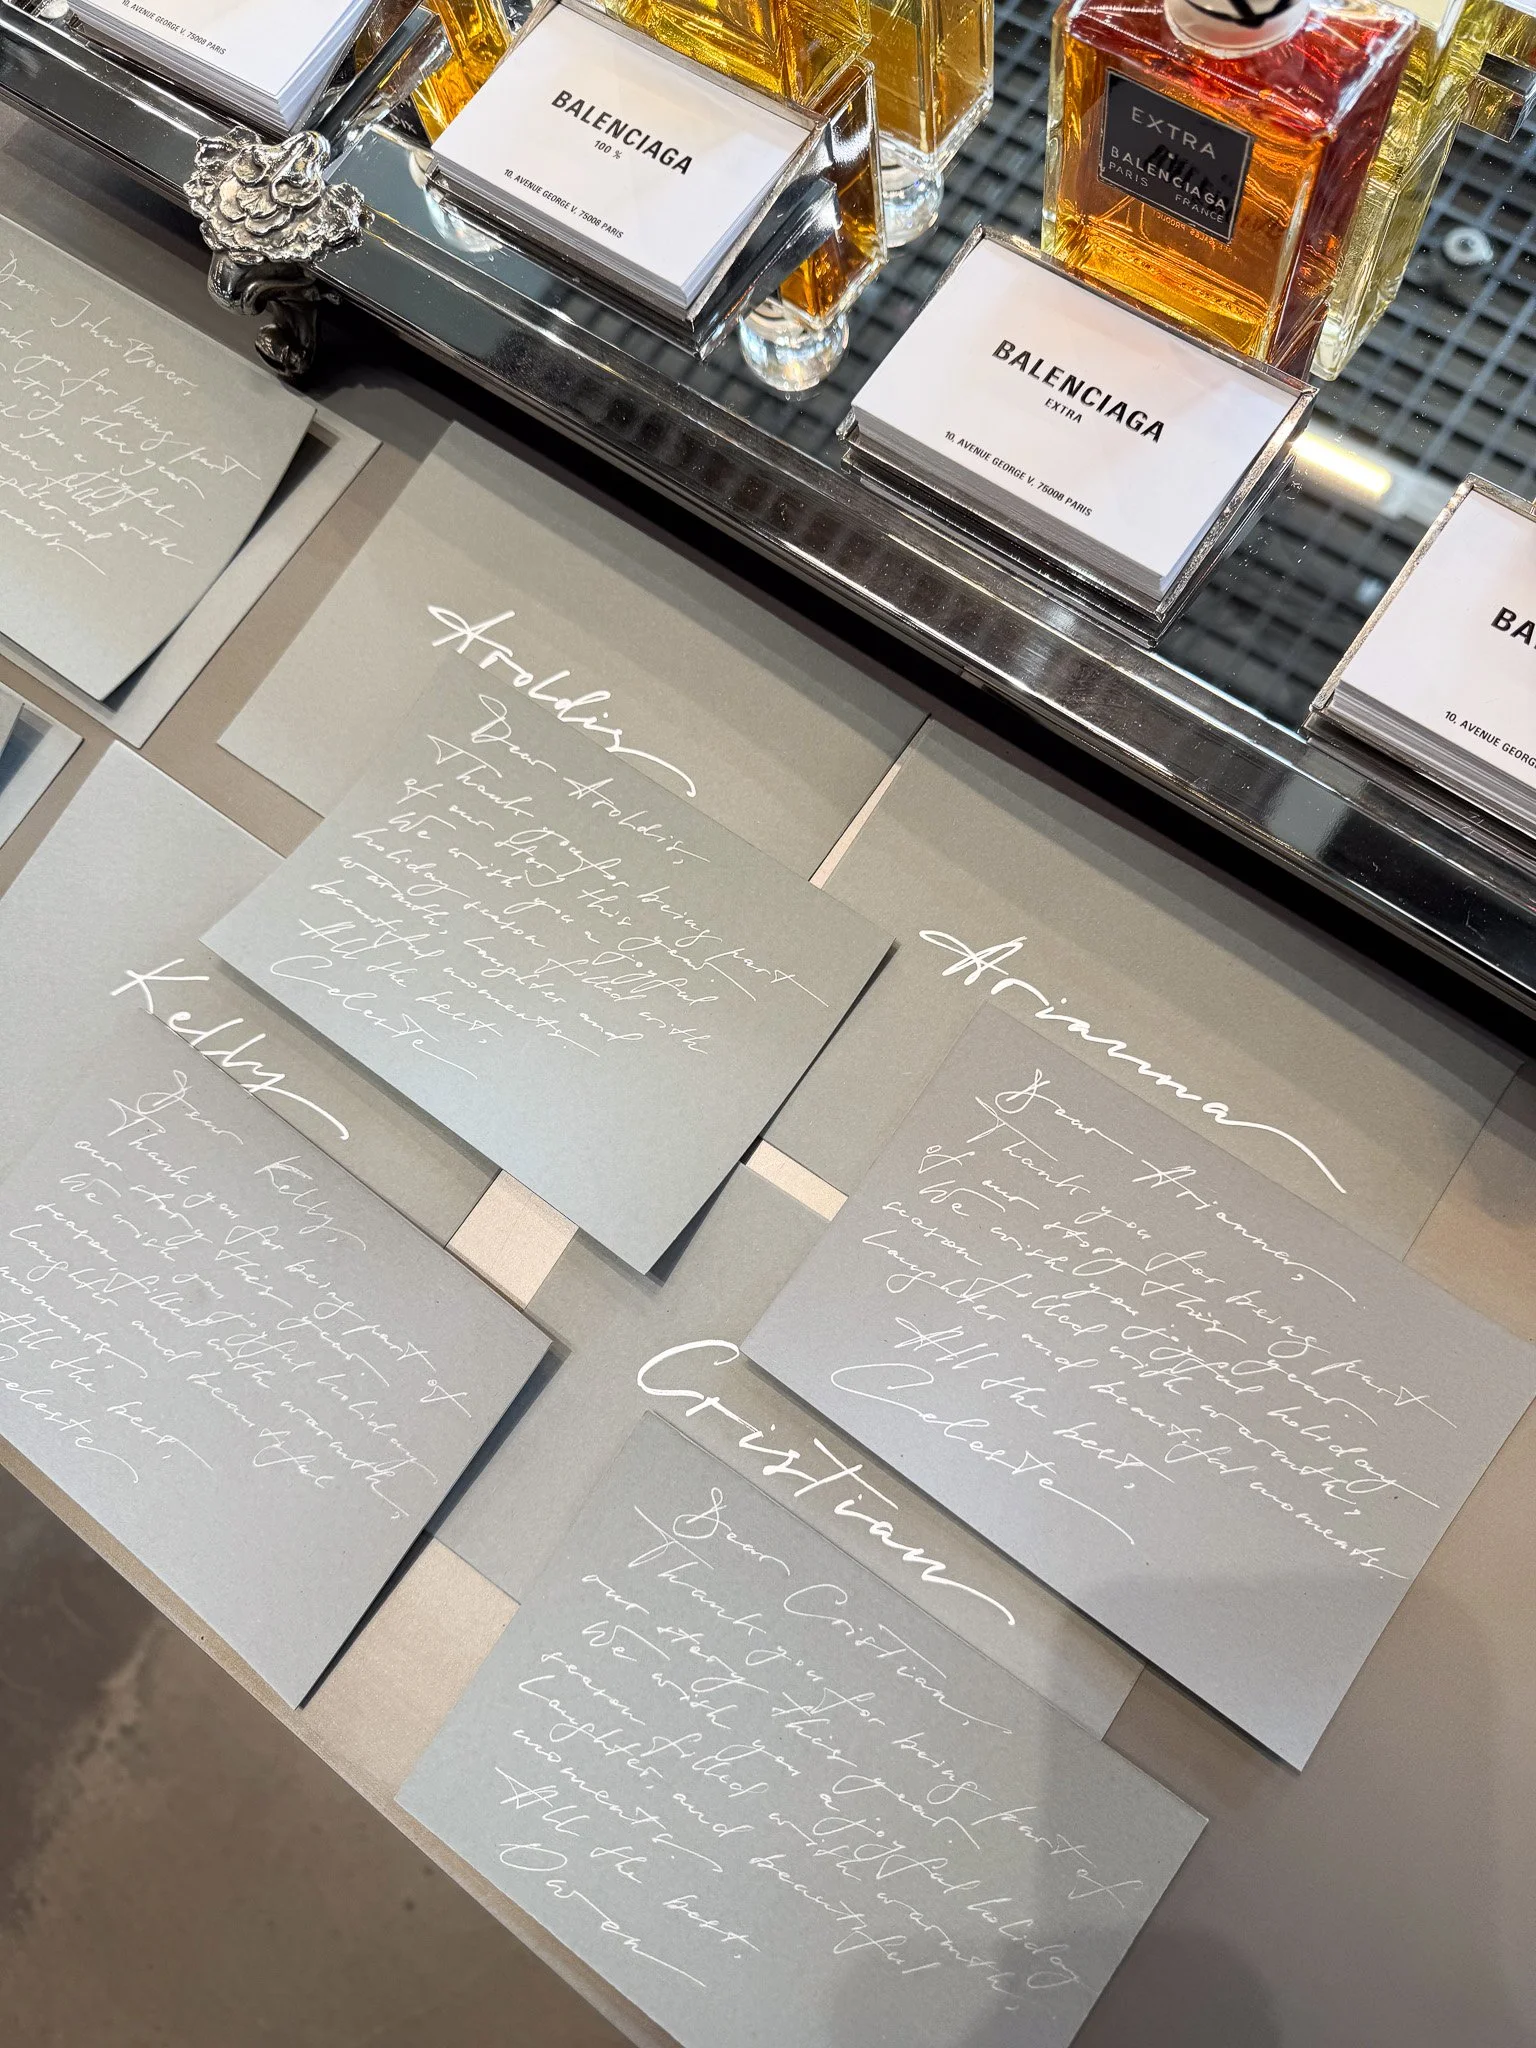 10, AVENUE GEORGE V, 75008 PARIS
BALENCIAGA
100 %
10, AVENUE GEORGE V, 75008 PARIS
EXTRA
BALENCIAGA
PARIS FRANCE
BALENCIAGA
EXTRA
10, AVENUE GEORGE V, 75008 PARIS
BA
10, AVENUE GEORG
Dear John Bosco,
you for being part
story this year
you a joyful
filled with
and
Aroldis
Dear Aroldis,
Thank you for being part
of our story this year.
We wish you a joyful
holiday season filled with
warmth, laughter and
beautiful moments.
All the best,
Celeste
Arianna
Dear Arianna,
Thank you for being part
of our story this year.
We wish you joyful holiday
season filled with warmth,
laughter and beautiful moments.
All the best,
Celeste
Kelly
Dear Kelly,
Thank you for being part of
our story this year.
We wish you joyful holiday
season, filled with warmth,
laughter and beautiful
moments.
All the best,
Celeste
Cristian
Dear Cristian,
Thank you for being part of
our story this year.
We wish you a joyful holiday
season filled with warmth,
laughter, and beautiful
moments.
All the best,
Owen